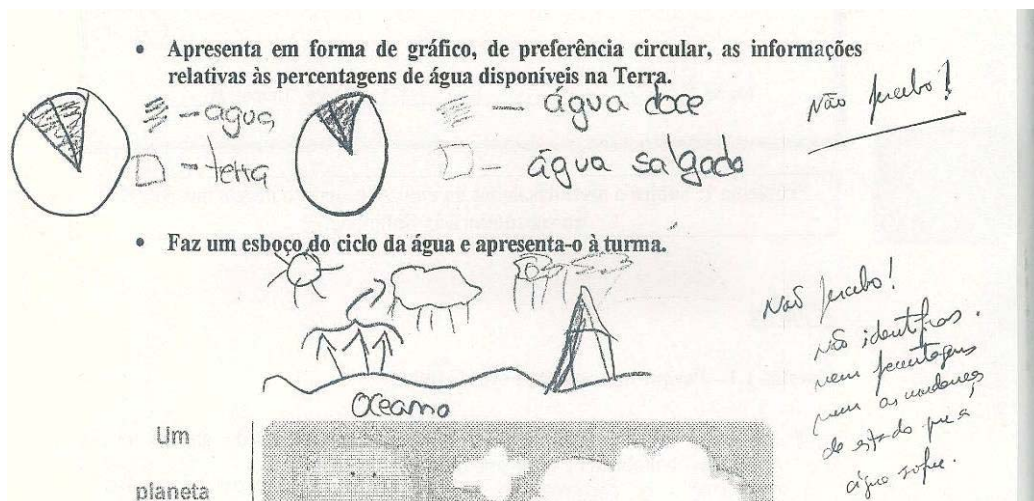 • Apresenta em forma de gráfico, de preferência circular, as informações
relativas às percentagens de água disponíveis na Terra.
- agua
- terra
- água doce
- água salgada
Não percebo!
• Faz um esboço do ciclo da água e apresenta-o à turma.
Oceano
Não percebo!
Não identificas.
nem percentagens
nem as mudanças
de estado que a
água sofre.
Um
planeta